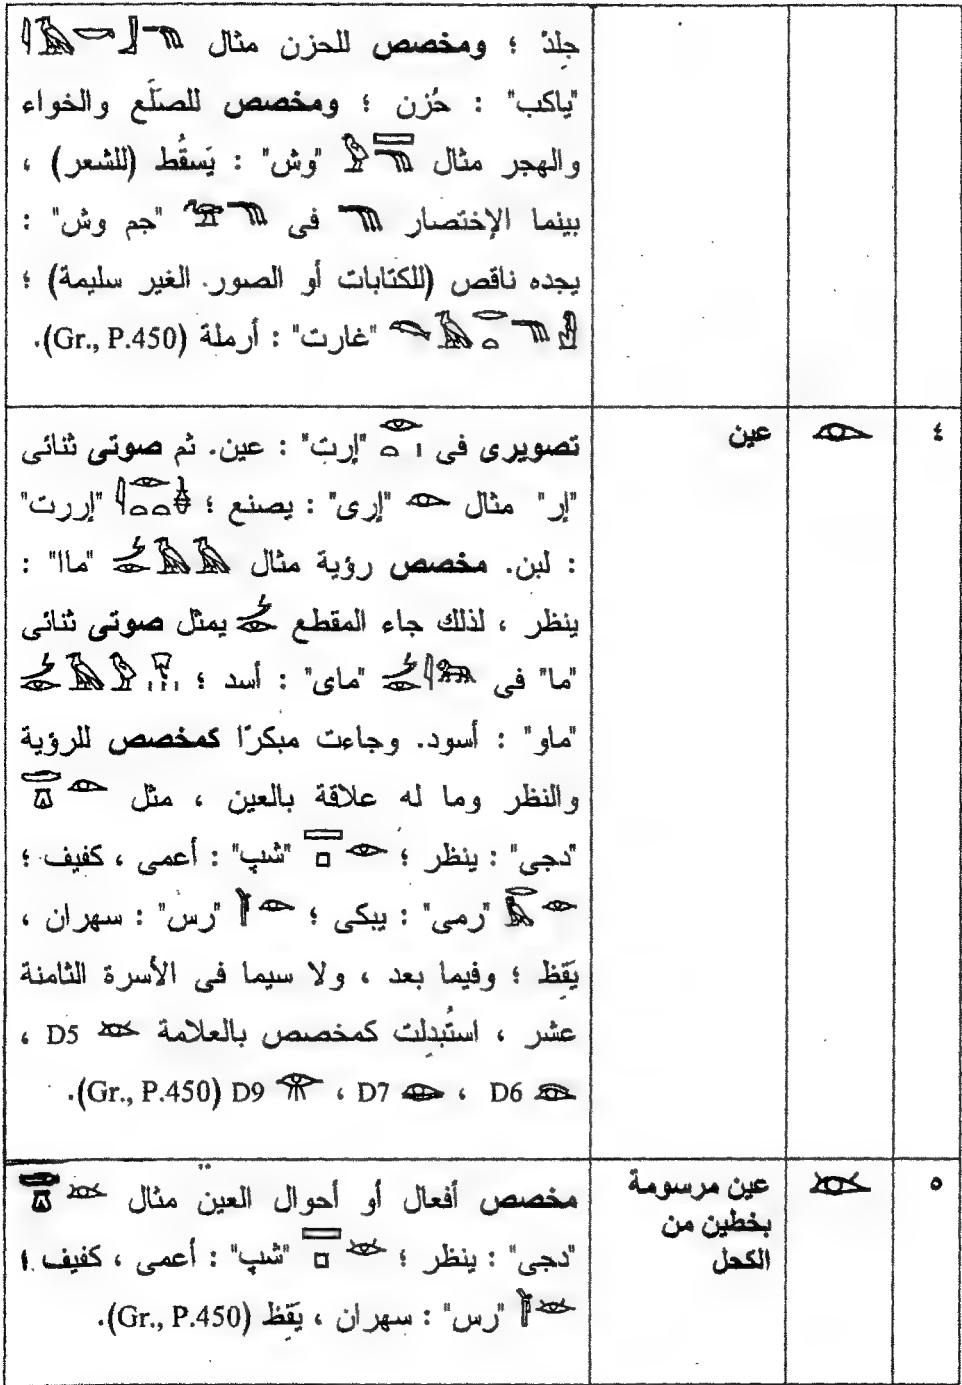 جِلدٌ ؛ ومخصص للحزن مثال 𓇋𓄿𓎡𓃀𓁸
"ياكب" : حُزن ؛ ومخصص للصلَع والخواء
والهجر مثال 𓅱𓈙𓁸 "وش" : يَسقُط (للشعر) ،
بينما الإختصار 𓁸 فى "جم وش" :
يجده ناقص (للكتابات أو الصور الغير سليمة) ؛
"غارت" : أرملة (Gr., P.450).
٤
𓁹
عين
تصويرى فى 𓁹𓏏𓏤 "إرت" : عين. ثم صوتى ثنائى
"إر" مثال 𓁹 "إرى" : يصنع ؛ "إررت"
: لبن. مخصص رؤية مثال 𓌳𓁹𓄿𓄿 "ماا" :
ينظر ، لذلك جاء المقطع 𓌳𓁹 يمثل صوتى ثنائى
"ما" فى "ماى" : أسد ؛
"ماو" : أسود. وجاءت مبكرًا كمخصص للرؤية
والنظر وما له علاقة بالعين ، مثل 𓂧𓎼𓁹
"دجى" : ينظر ؛ 𓈙𓊪𓁹 "شپ" : أعمى ، كفيف ؛
𓂋𓅓𓁹 "رمى" : يبكى ؛ 𓁹 "رس" : سهران ،
يَقِظ ؛ وفيما بعد ، ولا سيما فى الأسرة الثامنة
عشر ، استُبدِلت كمخصص بالعلامة 𓁺 D5 ،
𓁻 D6 ، 𓁼 D7 ، 𓁿 D9 (Gr., P.450).
٥
𓁺
عين مرسومة
بخطين من
الكحل
مخصص أفعال أو أحوال العين مثال 𓂧𓎼𓁺
"دجى" : ينظر ؛ 𓈙𓊪𓁺 "شپ" : أعمى ، كفيف ؛
𓁺 "رس" : سهران ، يَقِظ (Gr., P.450).